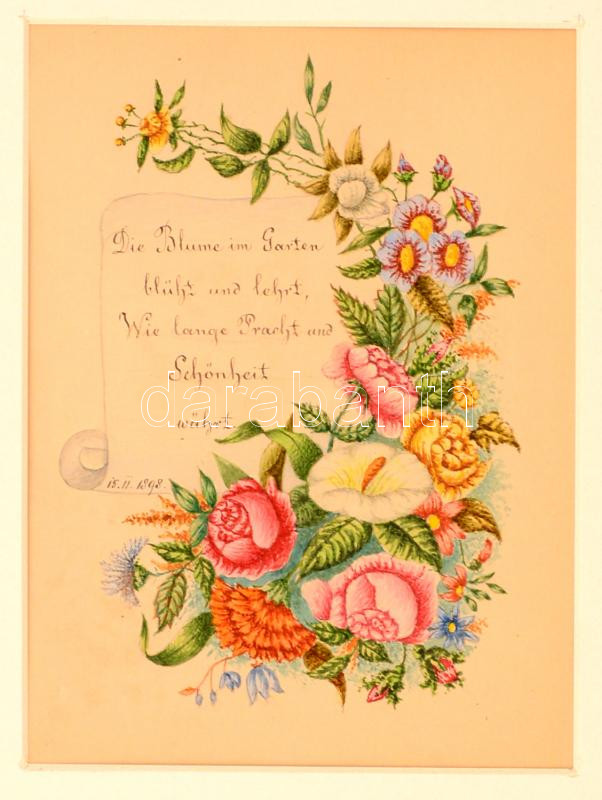 Die Blume im Garten
blüht und lehrt,
Wie lange Pracht und
Schönheit
währt.
15.II.1898.
darabanth